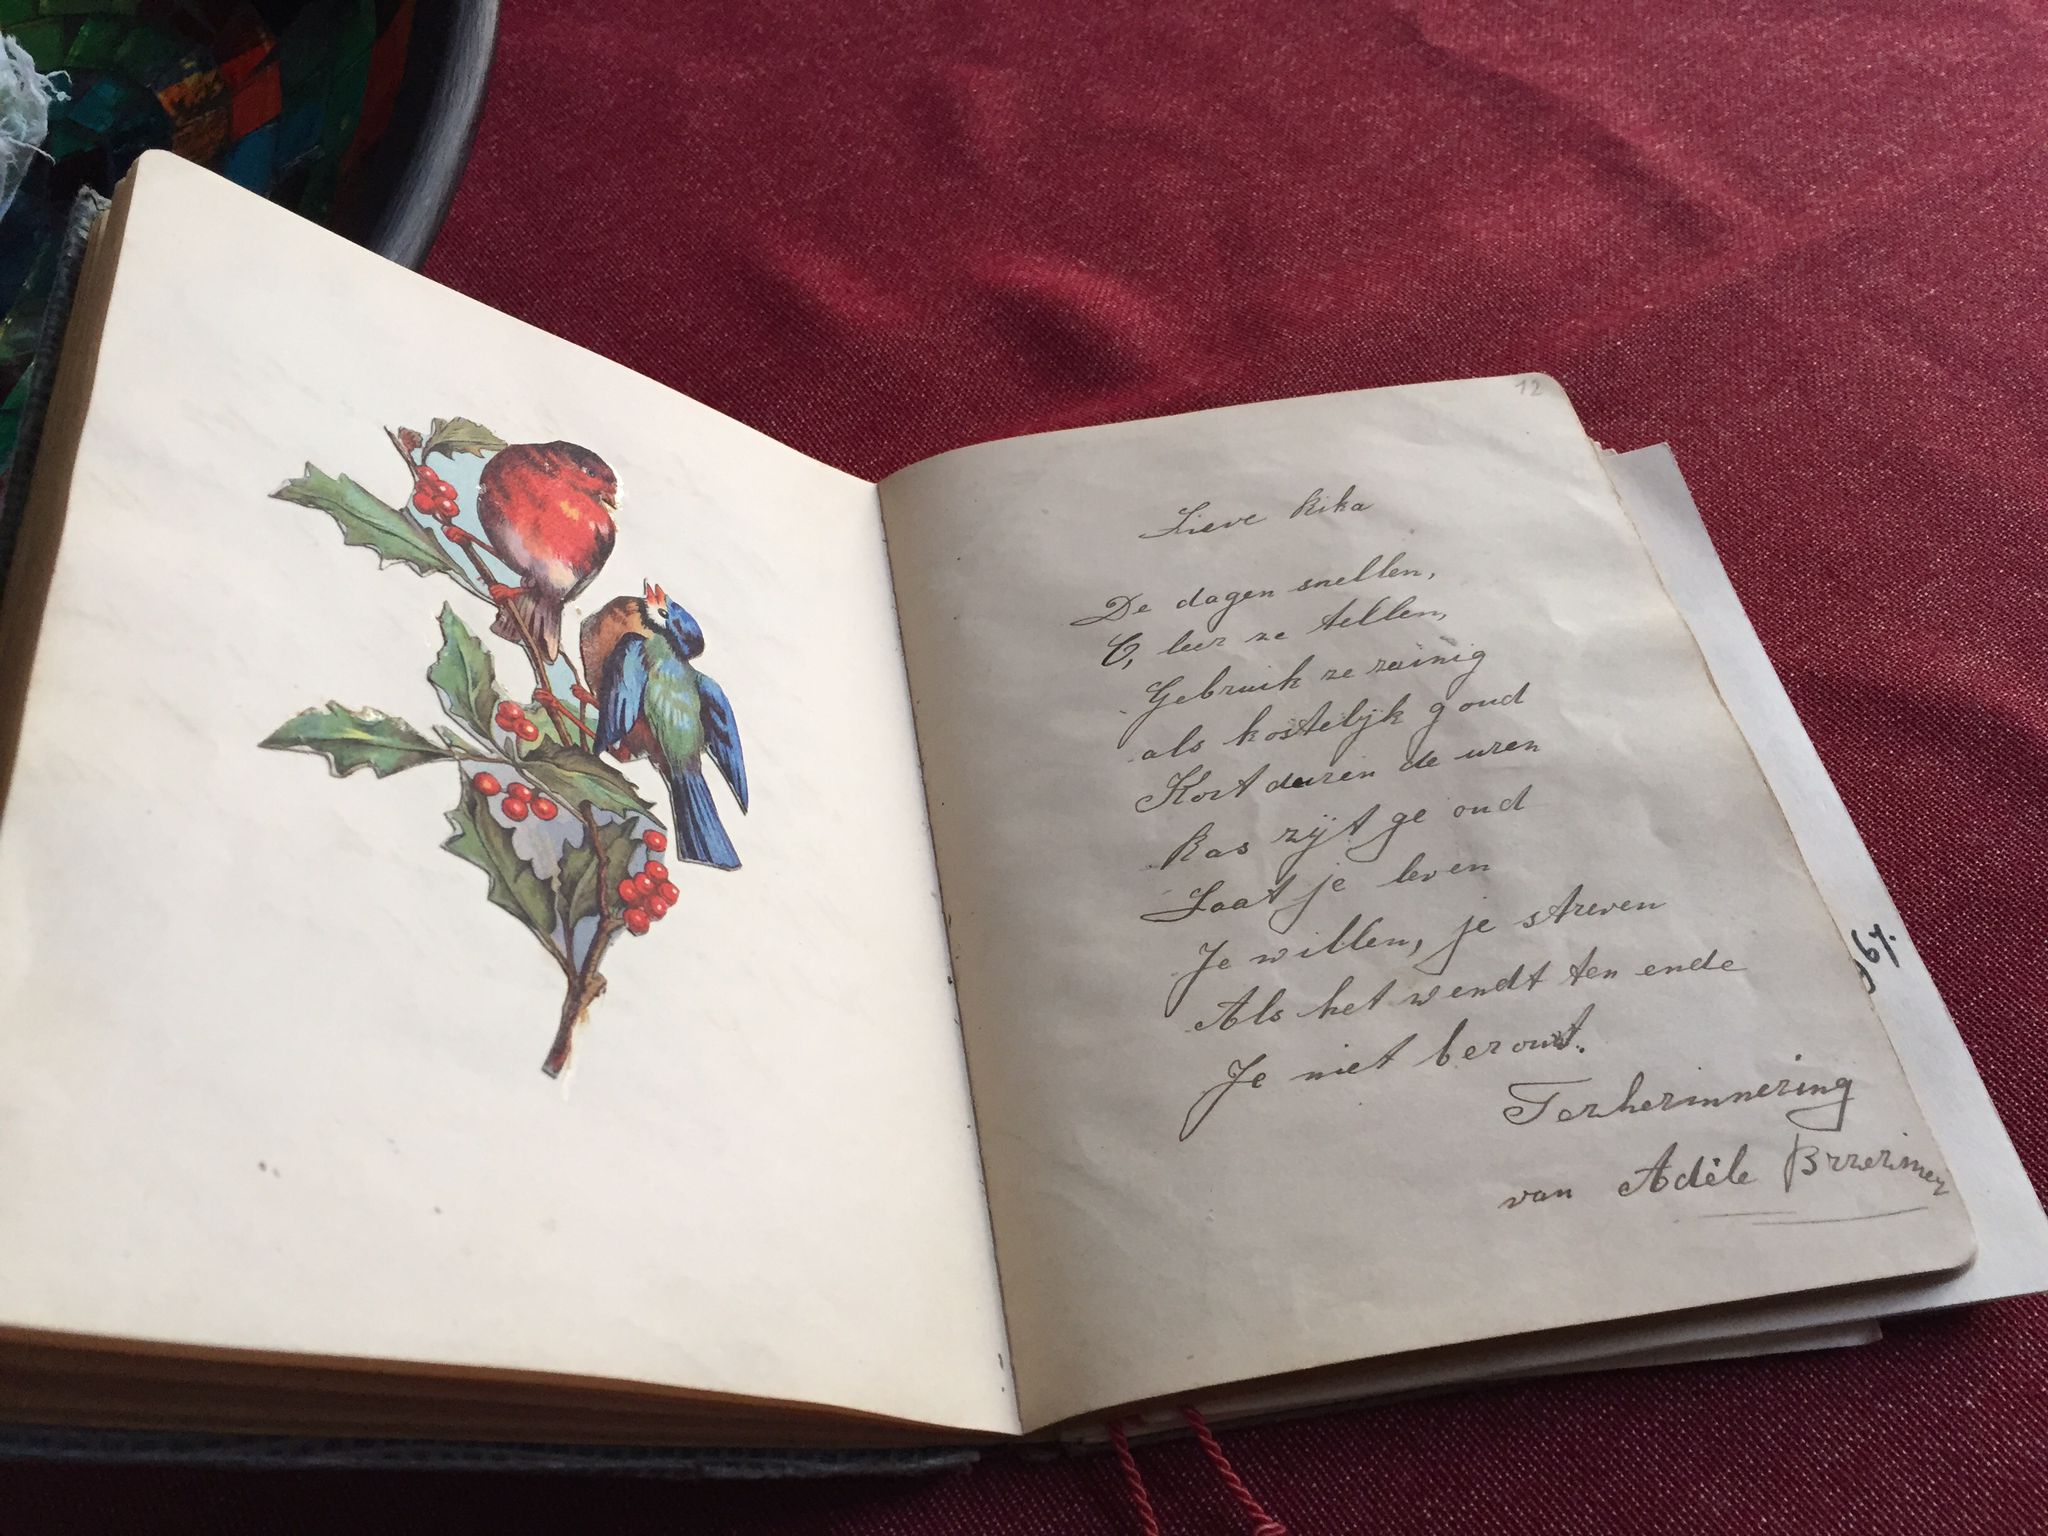 12
Lieve Rika
De dagen snellen,
O, leer ze tellen,
Gebruik ze zuinig
als kostelijk goud
Kort duren de uren
Ras zijt ge oud
Laat je leven
Je willen, je streven
Als het wendt ten ende
Je niet berouwt.
Terherinnering
van Adèle